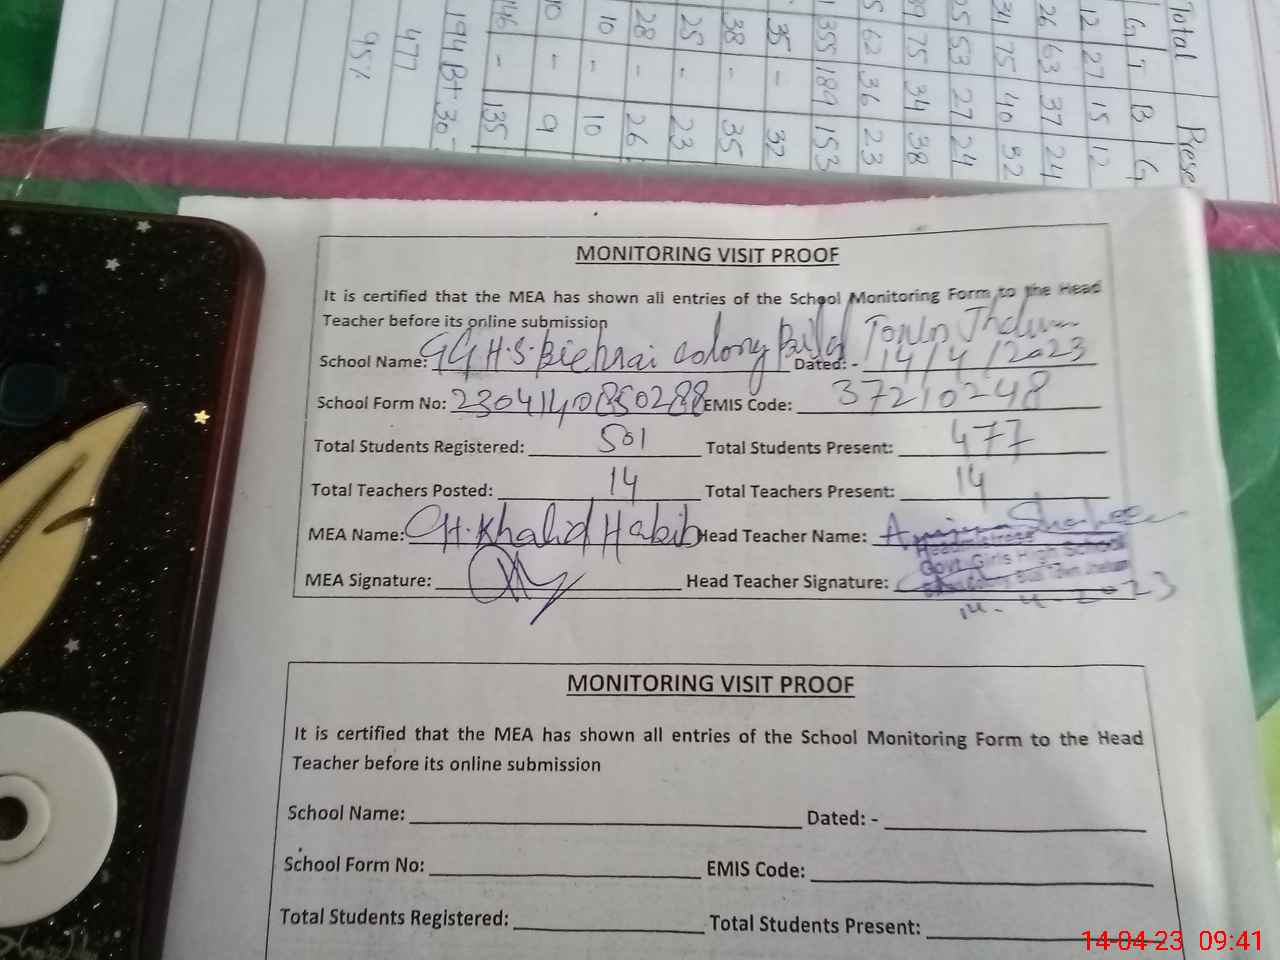 Total Prese
G T B G
12 27 15 12
26 63 37 24
31 75 40 32
25 53 27 24
75 34 38
62 36 23
355 189 153
35 - 32
38 - 35
25 - 23
28 - 26
10 - 10
10 - 9
146 - 135
194 B+ 30
477
95%
MONITORING VISIT PROOF
It is certified that the MEA has shown all entries of the School Monitoring Form to the Head
Teacher before its online submission
School Name: GGH.S. Colony Town Jhelum Dated: - 14/4/2023
School Form No: EMIS Code: 37210248
Total Students Registered: 501 Total Students Present: 477
Total Teachers Posted: 14 Total Teachers Present: 14
MEA Name: CH. Khalid Habib Head Teacher Name: Shaheen
Headmistress
Govt. Girls High School
MEA Signature: Head Teacher Signature:
14-4-2023
MONITORING VISIT PROOF
It is certified that the MEA has shown all entries of the School Monitoring Form to the Head
Teacher before its online submission
School Name: Dated: -
School Form No: EMIS Code:
Total Students Registered: Total Students Present:
14-04-23 09:41